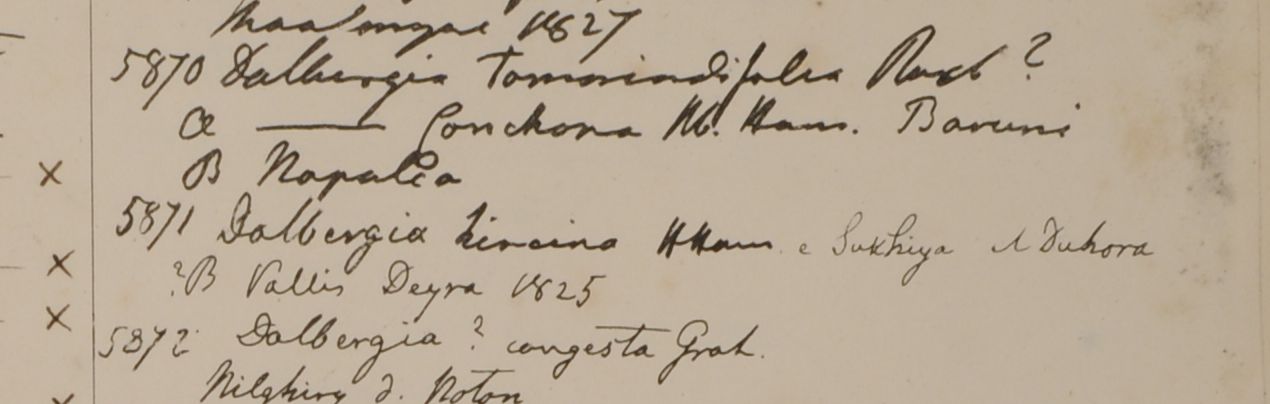 1827
5870 Dalbergia Tamarindifolia Roxb ?
a —— Conchona H. Ham. Baruni
B Napalia
5871 Dalbergia hircina HHam. e Sukhiya & Duhora
?B Vallis Deyra 1825
5872 Dalbergia ? congesta Grah.
Nilghiry d. Noton